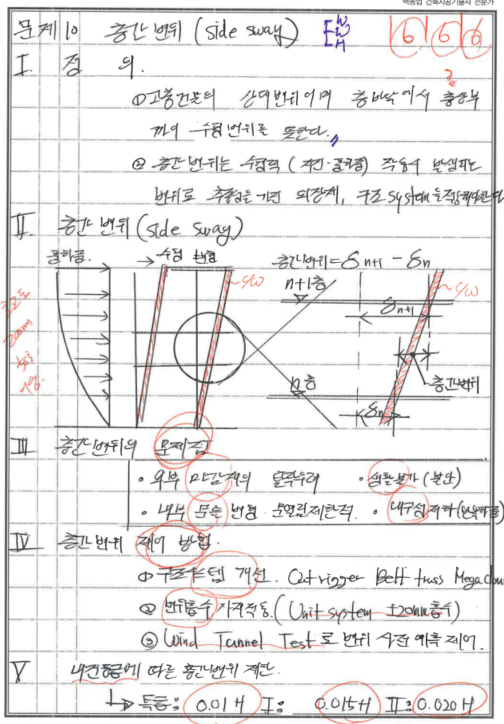 백종엽 건축시공기술사 전문가
문제 10 층간 변위 (side sway)
6 6 6
I. 정 의.
① 고층건물의 상대변위이며 층바닥에서 층상부
까지 수평변위를 뜻한다.
② 층간변위는 수평력 (지진·풍하중) 작용시 발생되는
변위로 추종성을 가진 외장재, 구조 system
II 층간 변위 (side sway)
풍하중. → 수평 변형
층간변위 = δn+1 - δn
C/W
n+1층
C/W
δn+1
20mm
n층
층간변위
δn
III 층간변위의 문제점
· 외부 마감재의 탈락우려 · 생활불가 (불안)
· 내부 문틀 변형 문열림제한적. · 내구성 저하
IV 층간 변위 제어 방법.
① 구조시스템 개선. Outrigger Belt truss Mega
② 변위흡수 (Unit system ±20mm흡수)
③ Wind Tunnel Test로 변위 사전 예측 제어.
V 내진등급에 따른 층간변위 제한
↳ 특등: 0.01H I: 0.015H II: 0.020H